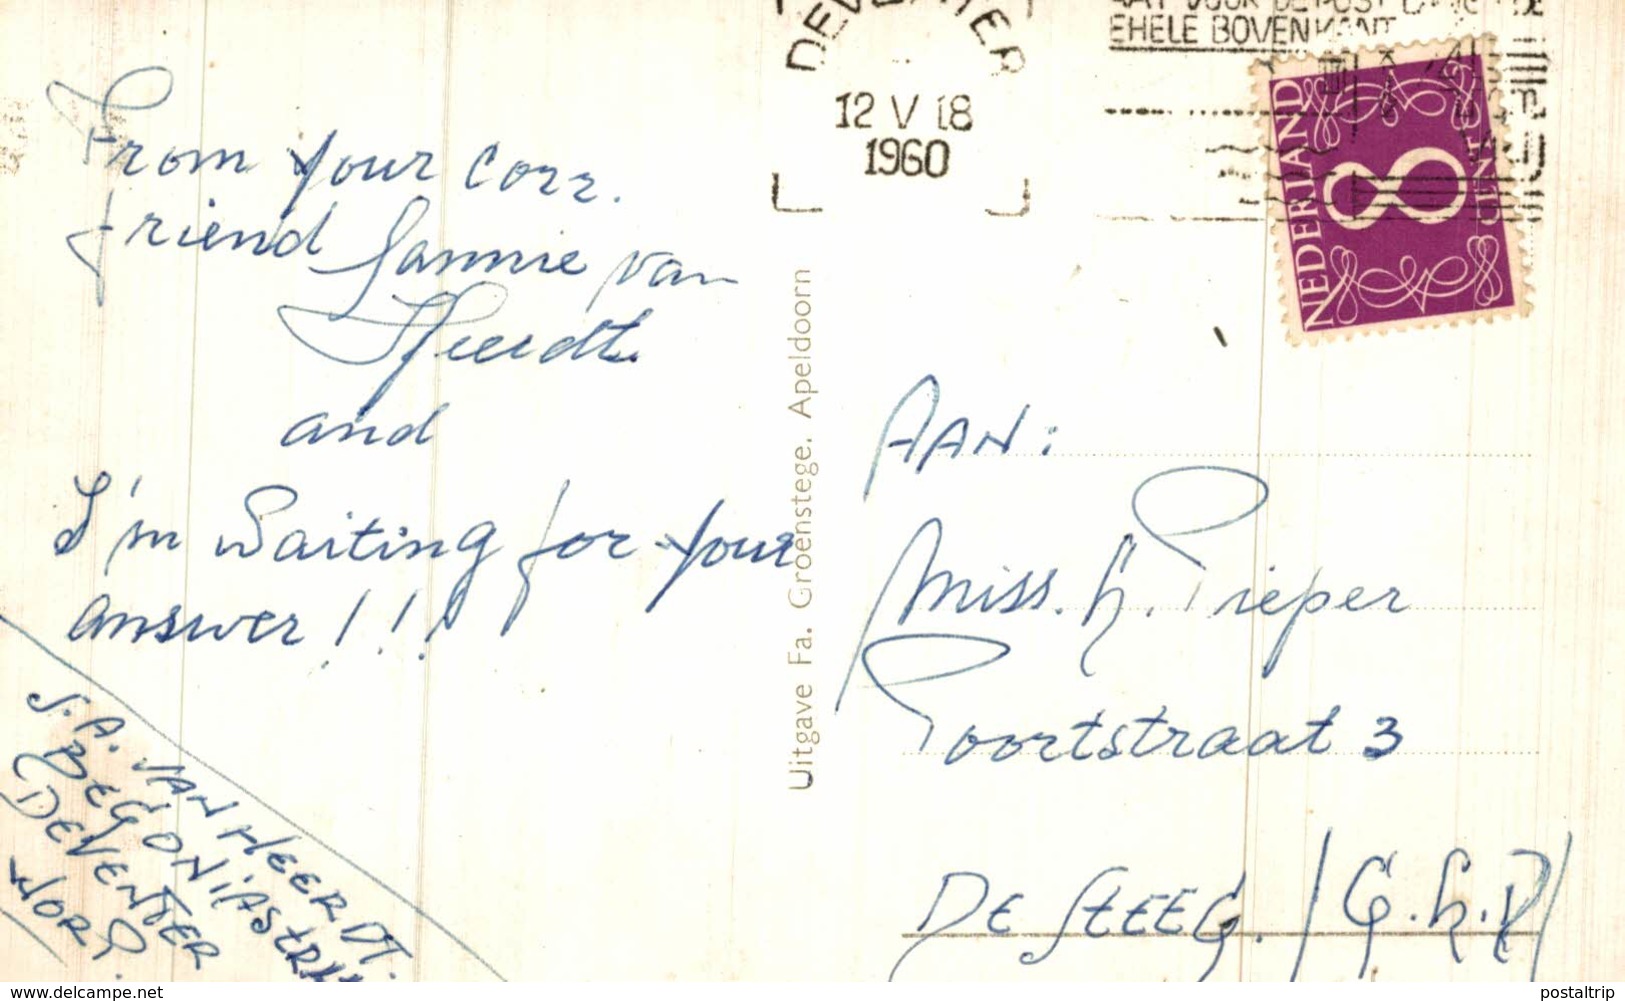 From your corr.
friend Sannie van
Heerdt.
and
I'm waiting for your
answer!!!
S.A. VAN HEERDT.
BEGONIASTR
DEVENTER
Uitgave Fa. Groenstege, Apeldoorn
DEVENTER
12 V 18
1960
EHELE BOVENKANT
NEDERLAND
8
CENT
AAN:
Miss. H. Pieper
Poortstraat 3
DE STEEG. / (G.
www.delcampe.net
postaltrip